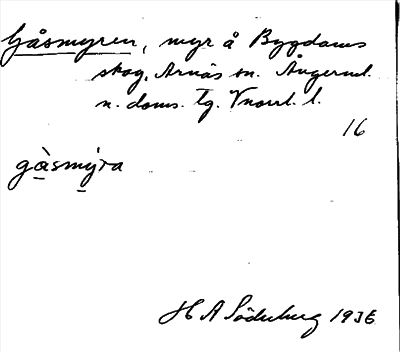 Gåsmyren, myr å Bygdoms
skog, Arnäs sn. Ångerml.
n. doms. tg. Vnorrl. l.
16
gàsmýra
H A Söderberg 1936